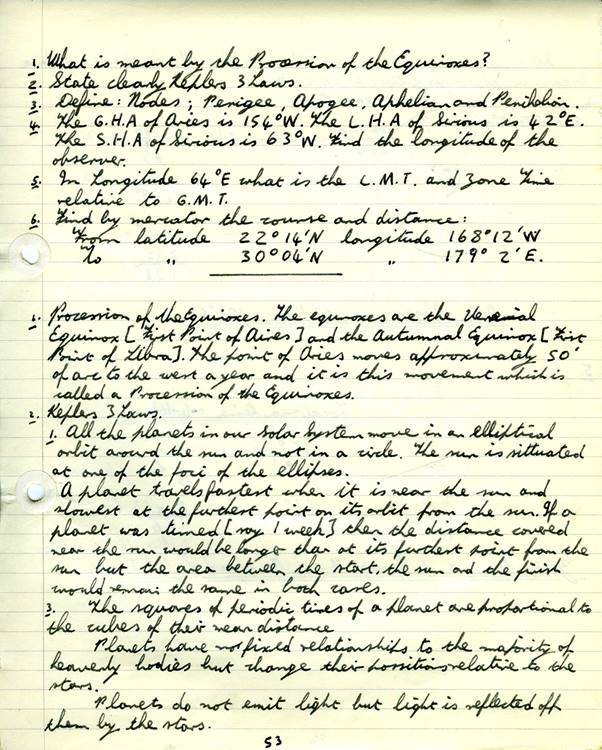 1. What is meant by the Procession of the Equinoxes?
2. State clearly Keplers 3 Laws.
3. Define: Nodes; Perigee, Apogee, Aphelian and Perihelion.
4. The G.H.A of Aries is 154°W. The L.H.A of Sirious is 42°E.
The S.H.A of Sirious is 63°W. Find the longitude of the
observer.
5. In Longitude 64°E what is the L.M.T. and Zone Time
relative to G.M.T.
6. Find by mercator the course and distance:
From latitude 22°14'N longitude 168°12'W
To " 30°04'N " 179° 2'E.
1. Procession of the Equinoxes. The equinoxes are the Vernial
Equinox [First Point of Aires] and the Autumnal Equinox [First
Point of Libra]. The point of Aries moves approximately 50'
of arc to the west a year and it is this movement which is
called a Procession of the Equinoxes.
2. Keplers 3 Laws.
1. All the planets in our Solar System move in an elliptical
orbit around the sun and not in a circle. The sun is sittuated
at one of the foci of the ellipses.
A planet travels fastest when it is near the sun and
slowest at the furthest point on its orbit from the sun. If a
planet was timed [say 1 week] then the distance covered
near the sun would be longer than at its furthest point from the
sun but the area between the start, the sun and the finish
would remain the same in both cases.
3. The squares of periodic times of a planet are proportional to
the cubes of their mean distance
Planets have no fixed relationships to the majority of
heavenly bodies but change their possitions relative to the
stars.
Planets do not emit light but light is reflected off
them by the stars.
53